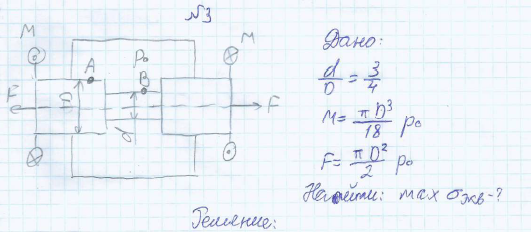 №3
M
M
A
p₀
B
F
D
d
F
Дано:
d/D = 3/4
M = πD³/18 p₀
F = πD²/2 p₀
Найти: max σэкв-?
Решение: